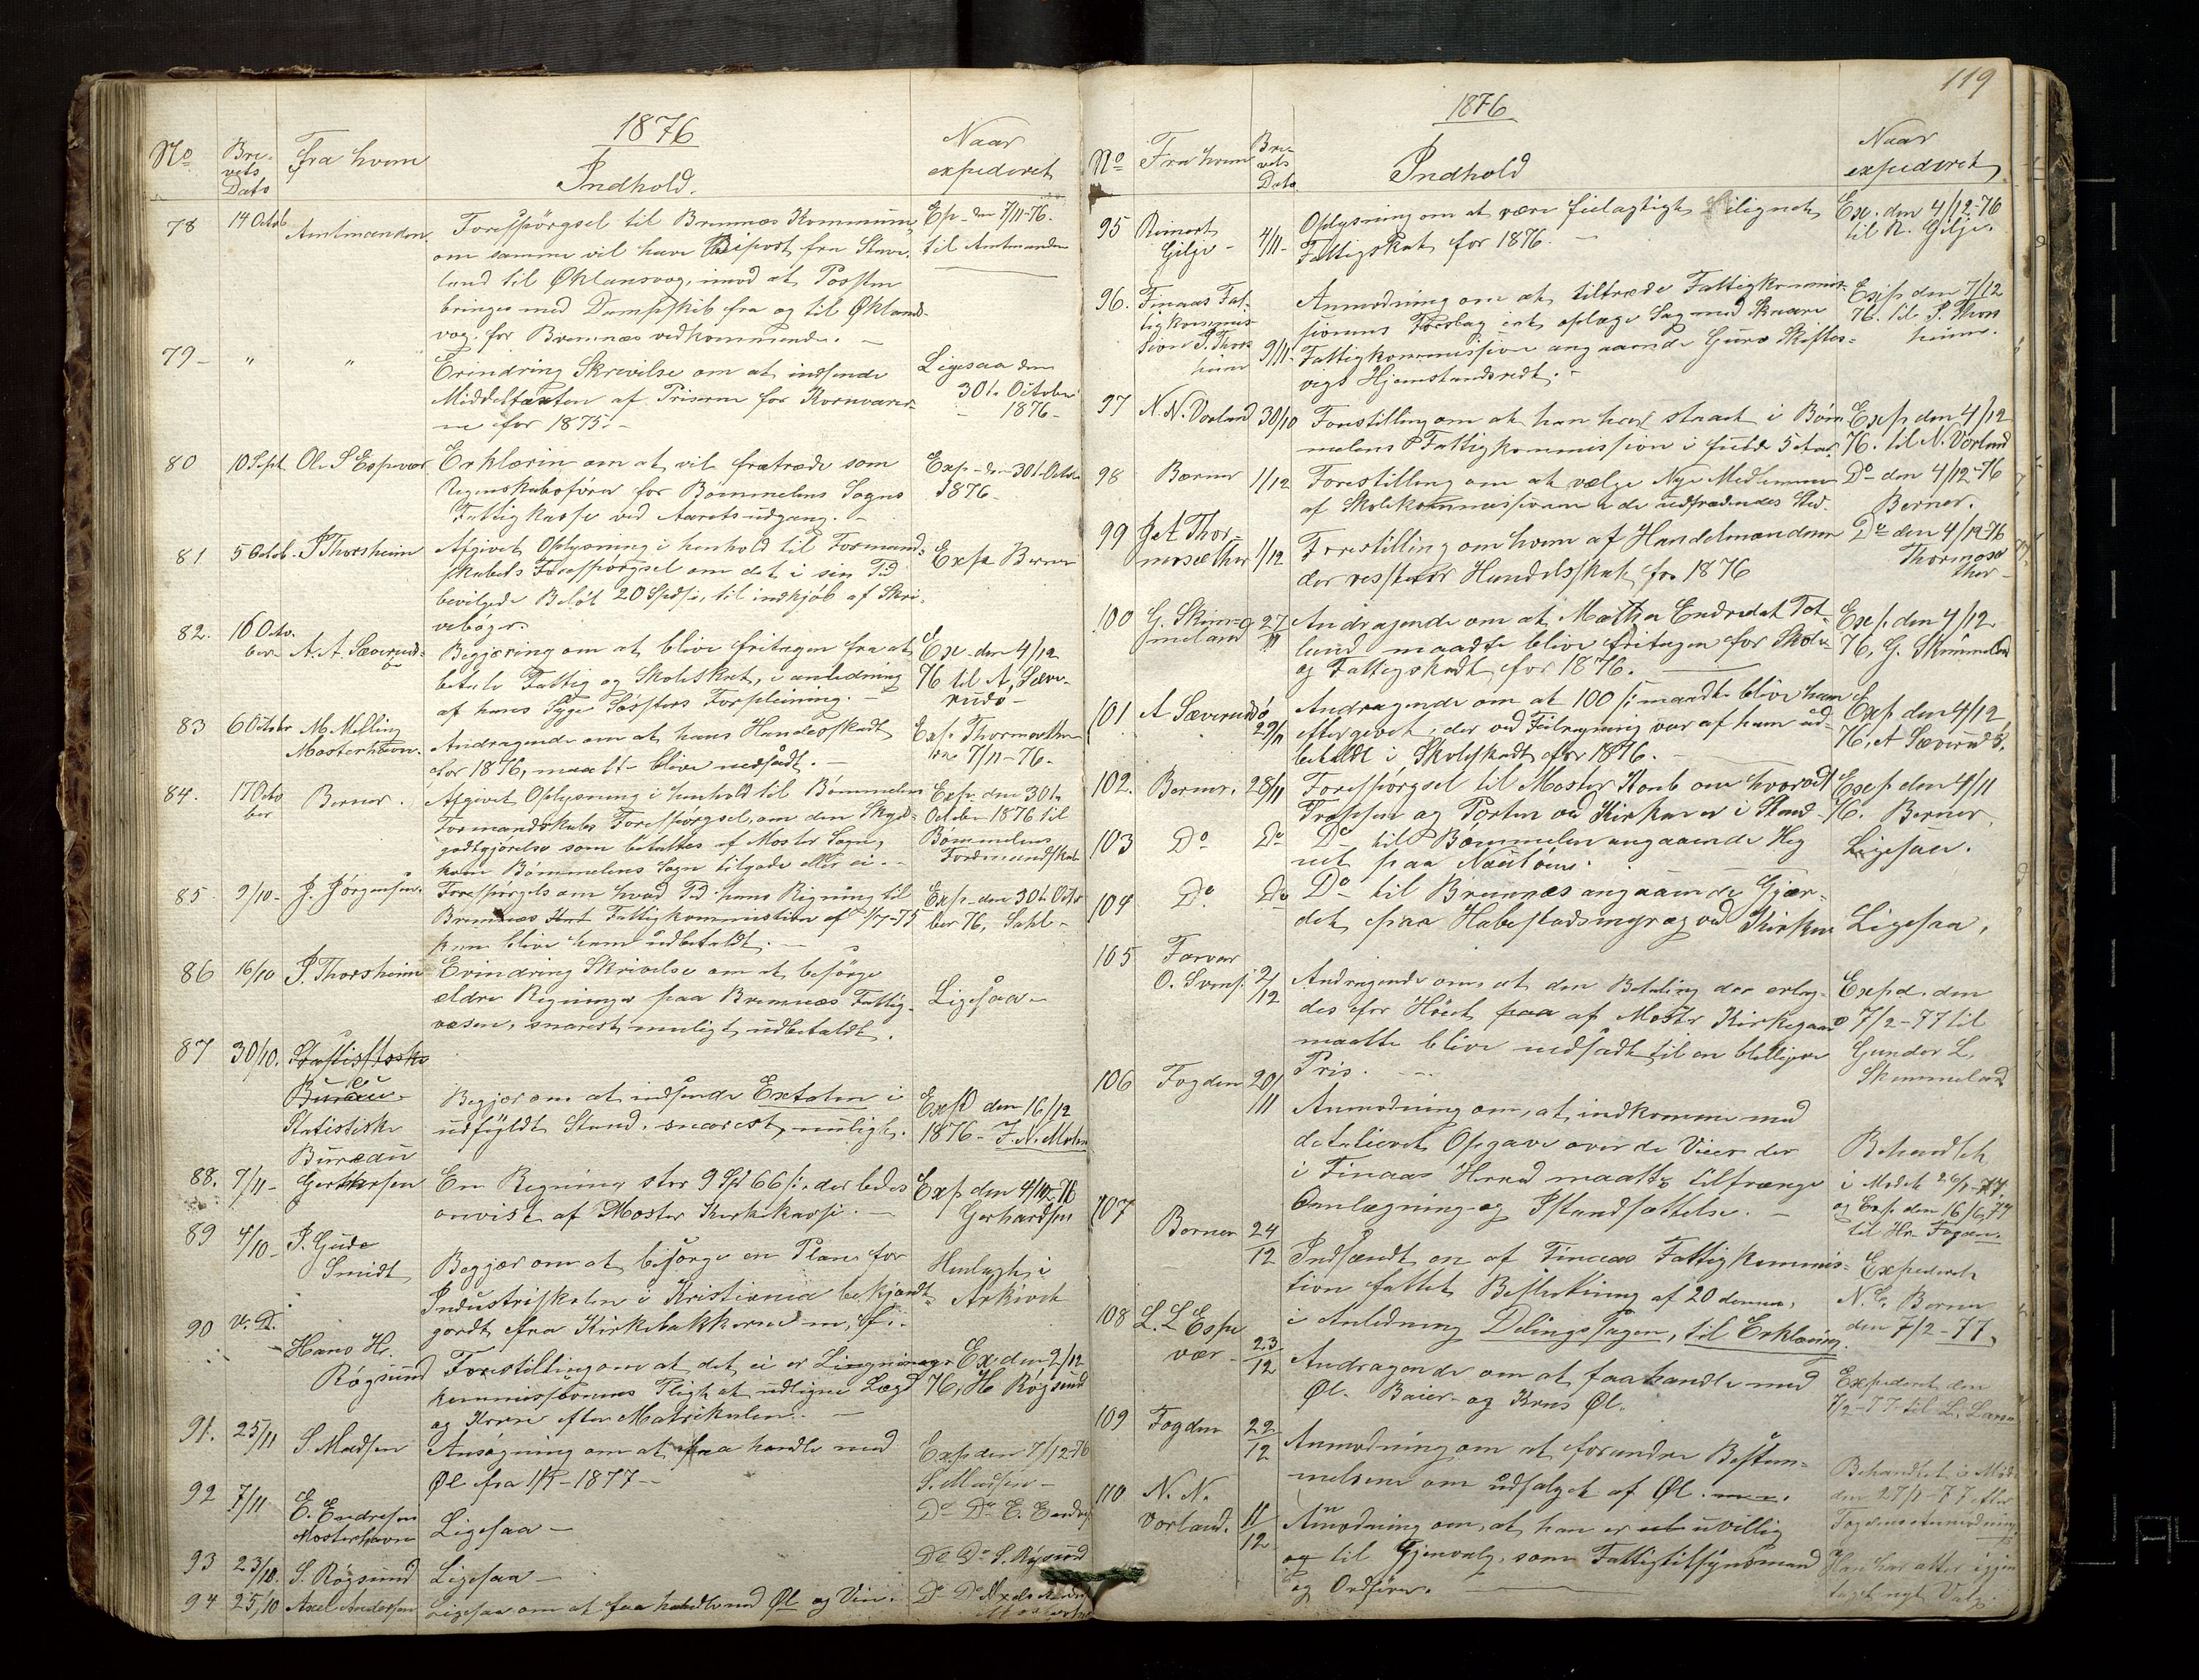 1876
No
Bre-
vets
Dato
Fra hvem
Indhold.
Naar
expederet
78
14 Octob
Amtmanden
Forespörgsel til Bremnæs Kommune,
om samme vil have Bipost fra Stave-
land til Øklansvog, imod at Posten
bringes med Dampskib fra og til Økland-
vog. for Bremnæs vedkommende. —
Exp. den 7/11-76.
til Amtmanden
79 –
"
"
Erindring Skrivelse om at indsende
Middeltaxten af Priserne for Kornvarer-
ne for 1875. –
Ligesaa den
30te October
1876 –
80
10 Sept
Ole S Espevær.
Erklærin om at vil fratræde som
Regnskabsförer for Bömmelens Sogns
Fattigkasse ved Aarets udgang. –
Exp – den 30te Octob
1876 –
81
5 Octob.
P Thorsheim
Afgivet Oplysning i henhold til Formand-
skabets Forespörgsel om det i sin Tid
bevilgede Belöb 20 Spds, til indkjöb af Skri-
veböger.
Exp. Berner
82.
16 Octo.
ber
A. A. Sæverud-
ö
Begjæring om at blive fritagen fra at
betale Fattig og Skoleskat, i anledning
af hans Syge Sösters Forpleining. –
Ex – den 4/12
76 til A, Sæve-
rudö –
83
6 October
M. Melling
Mosterhavn.
Andragende om at hans Handelsskadt
for 1876, maatte blive nedsadt. –
Exp. Thormæthr
den 7/11 – 76.
84.
17 Octo
ber
Berner.
Afgivet Oplysning i henhold til Bömmelens
Formandskabs Forespörgsel, om den Skyds-
godtgjörelse som betaltes af Moster Sogn,
kom Bömmelens Sogn tilgode eller ei. –
Exp. den 30te
October 1876 til
Bömmelens
Formandskab
85
9/10 –
J. Jörgensen.
Forespörgels om hvad Tid hans Rigning til
Bremnæs Fattigkommission af 1/7-75
kan blive ham udbetaldt. –
Exp – den 30te Octo
ber 76, Sahl –
86
16/10
P. Thorsheim
Erindring Skrivelse om at besörge
ældre Regninger paa Bremnæs Fattig-
væsen, snarest muligt udbetaldt.
Ligesaa –
87
30/10.
Stastistiske
Bureau –
Statistiske
Bureau
Begjær om at indsende Extaten i
udfyldt Stand, snarest muligt.
Exp den 16/12
1876 –
88.
7/11 –
Gerthersen
En Regning stor 9 Spd 66 s:, der bedes
anvist af Moster Kirkekasse. –
Exp den 4/12-76
Gerhardsen
89
4/10 –
P. Gude
Smidt
Begjær om at besörge en Plan for
Industriskolen i Kristiania bekjændt-
gordt fra Kirkebakkerne m, fl: –
Henlagt i
Arkivet
90
u. D.
Hans H.
Røgsund
Forestilling om at det ei er Lingnings-
kommissionens Pligt at udligne Lægd
og Korn efter Matrikulen. –
Ex. den 2/12
76, H Røgsund
91.
25/11
S. Madsen
Ansögning om at faa handle med
Øl fra 1/1 – 1877 –
Exp den 7/12-76
S. Madsen –
92
7/11
E. Endresen
Mosterhavn
Ligesaa –
Do Do E. Endres
93
23/10.
S. Røgsund
Ligesaa –
Do Do S. Røgsund
94
25/10
Axel Andersen
Ligesaa om at faa handle med Øl og Vin.
Do Do Axels Anders
119
1876
No
Fra hvem
Bre-
vets
Dato
Indhold
Naar
expederet
95
Reinert
Gilje –
4/11 –
Oplysning om at være feilagtigt iligned
Fattigskat for 1876. –
Ex. den 4/12-76
til R. Gilje.
96.
Finnaas Fat-
tigkommis-
sion P. Thors
heim
9/11 –
Anmodning om at tiltræde Fattigkommis-
sionens Forslag i at oplæge Sag med Skaare
Fattigkommission angaaende Guro Skiftes-
vigs Hjemstandsredt. –
Exp den 7/12
76. til P. Thors
heim.
97
N. N. Vorland
30/10
Forestilling om at han har staaet i Böm-
melens Fattigkommission i fulde 5 Aar.
Exp den 4/12
76. til N. Vorland
98
Berner
1/12
Forestilling om at vælge Nye Medlemmer
af Skolekommissionen i de udtrædendes Sted.
Do – den 4/12-76
Berner.
99
J. A Thor
mosæther
1/12
Forestilling om hvem af Handelmændene
der resterer Handelsskat for 1876
Do den 4/12-76
Thormosæ
ther –
100
G. Skim-
meland
27/11
Andragende om at Mathea Endresdat Tot-
land maatte blive fritagen for Skole
og Fattigskadt for 1876. –
Exp. den 4/12
76, G. Skimmeland
101
A Sæverudsö
29/11
Andragende om at 100 s: maatte blive ham
eftergivet, der ved Feilregning var af ham ud-
betaldt i Skoleskadt for 1876. –
Exp den 4/12
76, A Sæverudö.
102.
Berner,
28/11
Forespörgsel til Moster Komb om hvorvidt
Trappen og Porten ved Kirken er i Stand –
Exp den 4/11
76. Berner.
103
Do
Do
Do – til Bömmelen angaaende Heg
net paa Nautöen.
Ligesaa.
104
Do
Do
Do – til Bremnæs angaaende Gjær-
det paa Habestadsmyræ ved Kirken
Ligesaa,
105
Farvær
O. Svens.
2/12
Andragende om, at den Betaling der erlag-
des for Höiet paa af Moster Kirkegaard
maatte blive nedsadt til en billigere
Pris. –
Exped. den
7/2 – 77 til
Gunder L.
Skimmeland
106
Fogden
20/11
Anmodning om, at indkomme med
detalieret Opgave over de Veier der
i Finnaas Herred maatte tiltrænge
Omlægning og Istandsættelse. –
Behandlet
i Möde 26/1-77,
og Exp. den 16/6-77
til Hr. Fogden.
107
Berner
24/12
Indsændt en af Finnaas Fattigkommis-
sion fattet Beslutning af 20 dennes,
i Anledning Delingssagen, til Erklæring.
Expederet
N. E. Berner
den 7/2 – 77.
108
L. L Espe
vær –
23/12
Andragende om at faa handle med
Øl. Baier- og Krus Øl.
Expederet den
7/2-77 til L. Larse
109
Fogden
22/12
Anmodning om at forandre Bestem-
melserne om udsalget af Øl.
Behandlet i Möde
den 27/1-77 efter
Fogdens Anmodning
110
N. N.
Vorland.
11/12
Anmodning om, at han er uvillig
og til Gjenvalg, som Fattigtilsynsmand
og Ordförer. –
Han har atter igjen
taget nyt Valg.